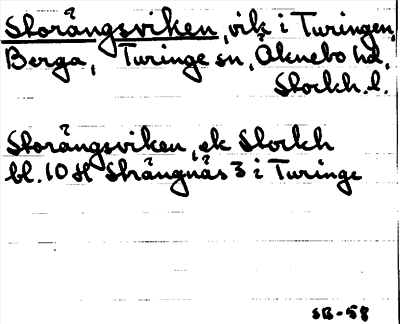 Storängsviken, vik i Turingen,
Berga, Turinge sn, Öknebo hd,
Stockh. l.
Storängsviken, ek Stockh
bl. 10 H Strängnäs 3 i Turinge
SB-58